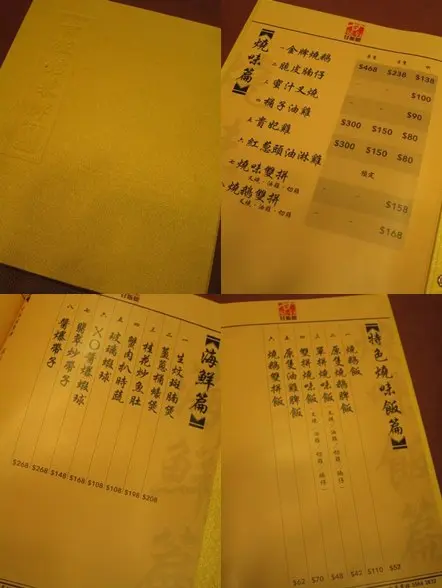 【燒味篇】
一 金牌燒鵝 $468 $238 $138
二 脆皮腩仔 - - $100
三 蜜汁叉燒 - - $90
四 桶子油雞 $300 $150 $80
五 貴妃雞 $300 $150 $80
六 紅葱頭油淋雞 檢定
七 燒味雙拼 - - $158
叉燒·油雞·切雞
八 燒鵝雙拼 - - $168
叉燒·油雞·切雞
【海鮮篇】
一 生炆斑腩煲 $208
二 薑葱桶蠔煲 $198
三 桂花炒魚肚 $108
四 蟹肉扒時蔬 $108
五 玻璃蝦球 $168
六 XO醬爆蝦球 $148
七 翡翠炒帶子 $268
八 醬爆帶子 $268
【特色燒味飯篇】
一 燒鵝飯 $52
二 原隻燒鵝髀飯 $110
三 單拼燒味飯 $42
四 雙拼燒味飯 $48
五 原隻油雞髀飯 $70
六 燒鵝雙拼飯 $62